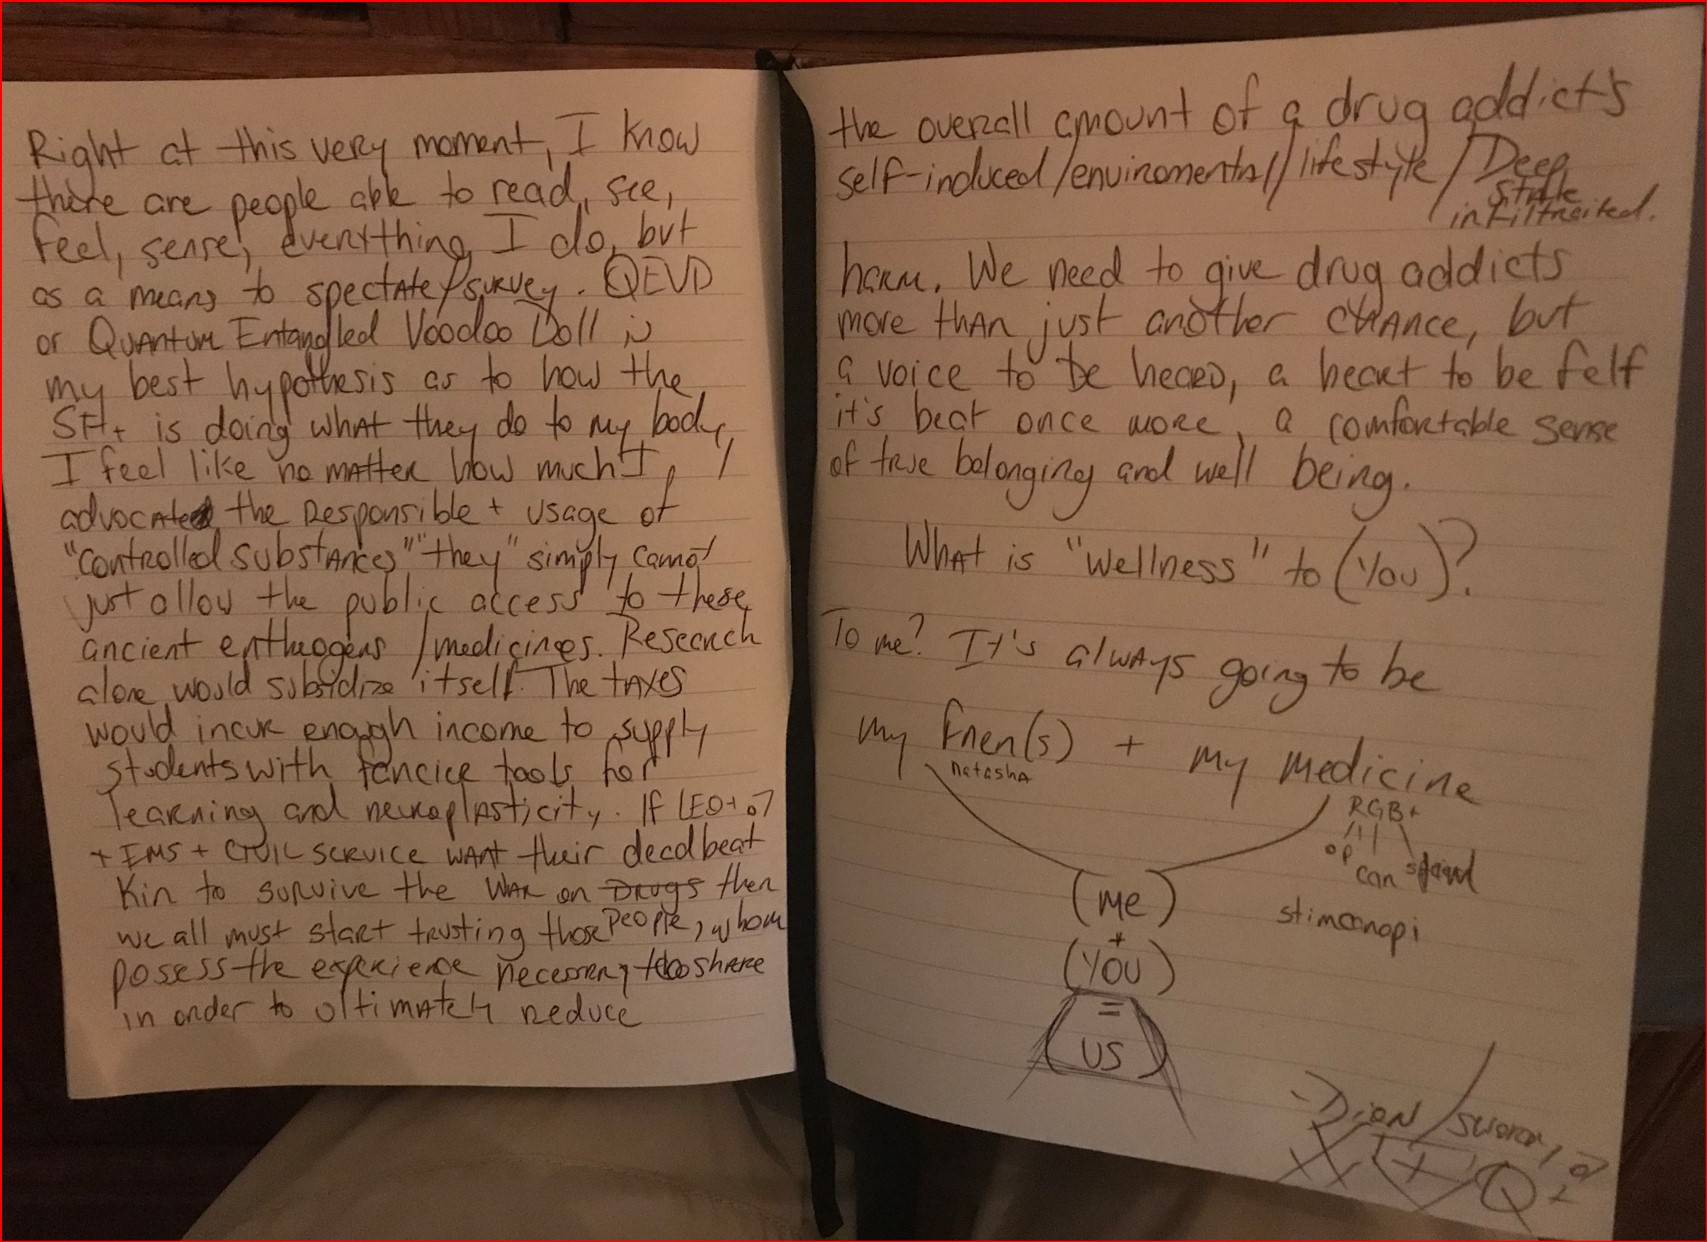 Right at this very moment, I know
there are people able to read, see,
feel, sense, everything I do, but
as a means to spectate/survey. QEVD
or Quantum Entangled Voodoo Doll is
my best hypothesis as to how the
SH+ is doing what they do to my body,
I feel like no matter how much I
advocate the responsible + usage of
"controlled substances" "they" simply cannot
just allow the public access to these
ancient entheogens / medicines. Research
alone would subsidize itself. The taxes
would incur enough income to supply
students with fancier tools for
learning and neuroplasticity. If LEO+
+ EMS + civil service want their deadbeat
kin to survive the war on drugs then
we all must start trusting those people, whom
posess the experience necessary to share
in order to ultimately reduce
the overall amount of a drug addict's
self-induced/enviromental/lifestyle/Deep
State
infiltraited.
harm. We need to give drug addicts
more than just another chance, but
a voice to be heard, a heart to be felt
it's beat once more, a comfortable sense
of true belonging and well being.
What is "wellness" to (you)?
To me? It's always going to be
my fren(s) + my medicine
natasha
RGB+
op
can
stimcanopi
(me)
+
(you)
=
(us)
-Dion /
+ Q